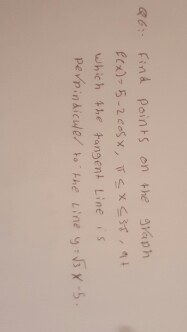 Q6:- Find points on the graph
f(x) = 5 - 2 cos x, π ≤ x ≤ 3π, at
which the tangent line is
perpindiculer to the line y = √3 x - 5.